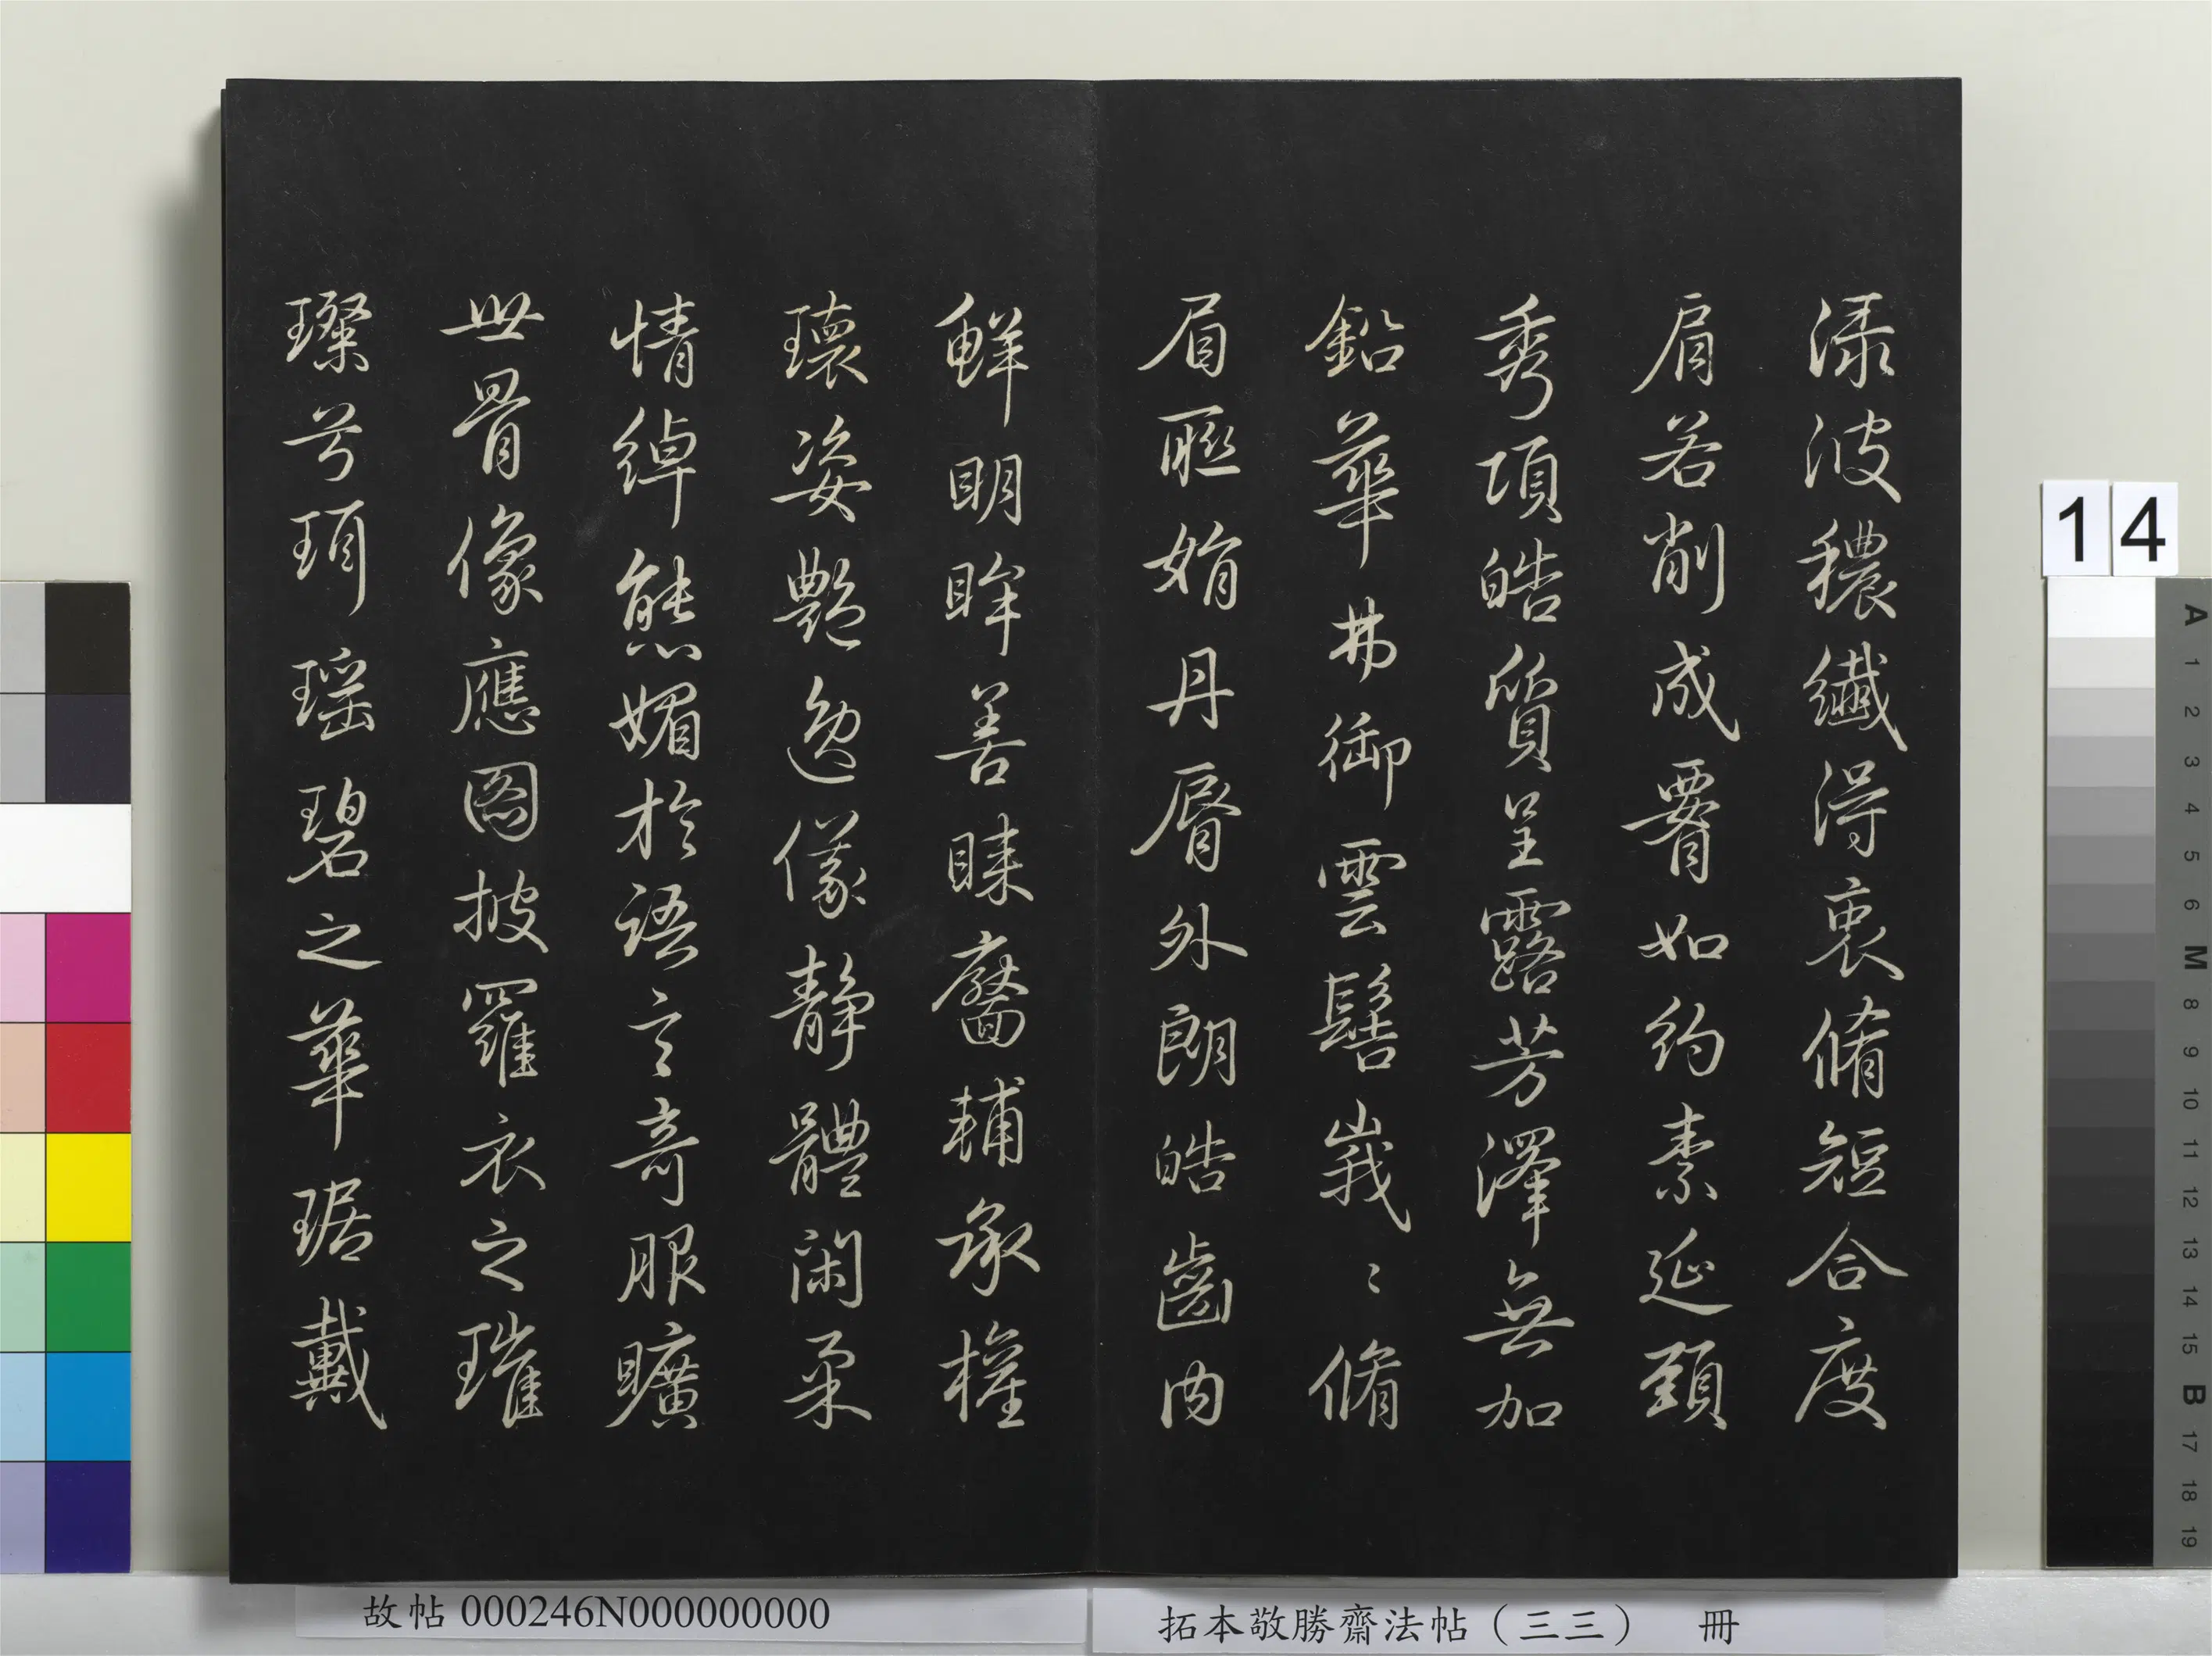 淥波穠纖得衷脩短合度
肩若削成腰如約素延頸
秀項皓質呈露芳澤無加
鉛華弗御雲髻峩〻脩
眉聯娟丹脣外朗皓齒内
鮮明眸善睞靨輔承權
瓌姿艷逸儀静體閑柔
情綽態媚於語言奇服曠
世骨像應圖披羅衣之璀
璨兮珥瑶碧之華琚戴
故帖 000246N000000000
拓本敬勝齋法帖（三三） 冊
14
A
1
2
3
4
5
6
M
8
9
10
11
12
13
14
15
B
17
18
19